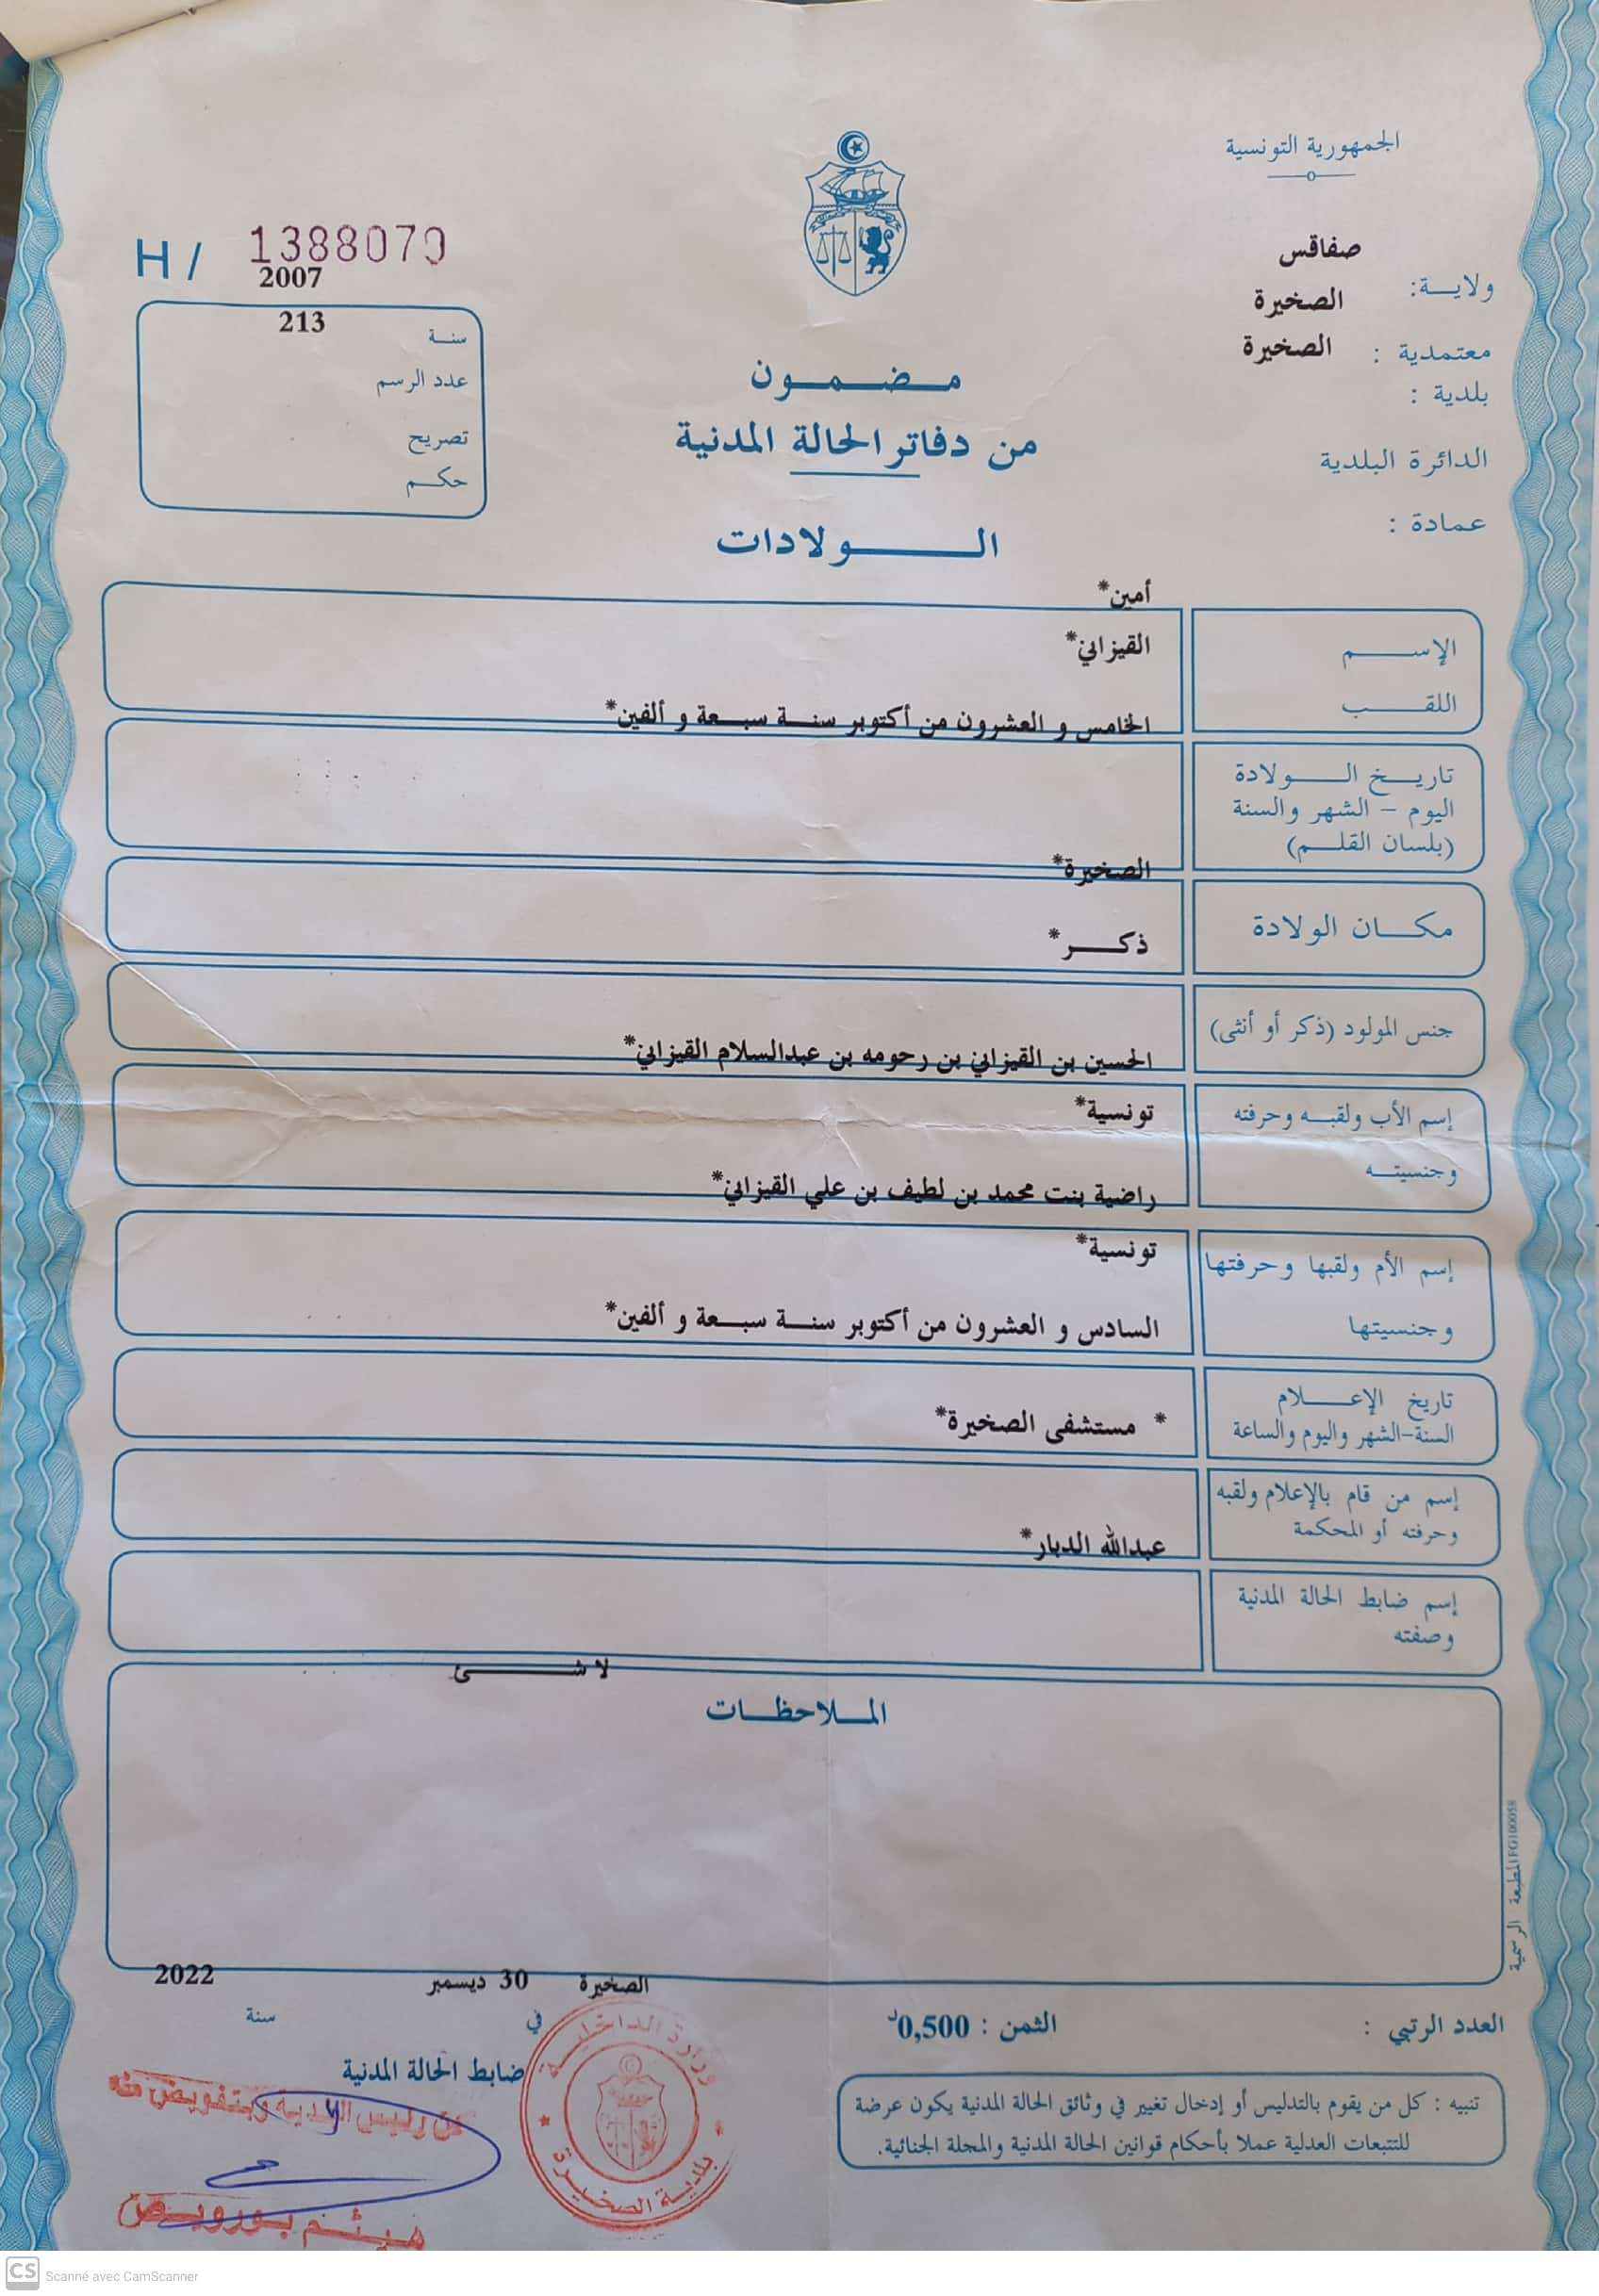 الجمهورية التونسية
صفاقس
ولايـــة:
الصخيرة
معتمدية :
الصخيرة
بلدية :
الدائرة البلدية
عمادة :
H / 1388070
2007
213
سنـــة
عدد الرسم
تصريح
حكـــم
مـــضـــمـــون
من دفاتر الحالة المدنية
الـــــولادات
أمين*
الإســـــم
القيزاني*
اللقـــــب
الخامس و العشرون من أكتوبر سنـــة سبـــعة و ألفين*
تاريـــخ الـــــولادة
اليوم – الشهر والسنة
(بلسان القلـــم)
الصخيرة*
مكـــان الولادة
ذكـــــر*
جنس المولود (ذكر أو أنثى)
الحسين بن القيزاني بن رحومه بن عبدالسلام القيزاني*
إسم الأب ولقبـــه وحرفته
تونسية*
وجنسيتـــه
راضية بنت محمد بن لطيف بن علي القيزاني*
تونسية*
إسم الأم ولقبها وحرفتها
وجنسيتها
السادس و العشرون من أكتوبر سنـــة سبـــعة و ألفين*
تاريخ الإعـــــلام
السنة-الشهر واليوم والساعة
* مستشفى الصخيرة*
إسم من قام بالإعلام ولقبه
وحرفته أو المحكمة
عبدالله الدبار*
إسم ضابط الحالة المدنية
وصفته
لا شـــــئ
المـــلاحظـــات
المطبعة الرسمية FG100058
الصخيرة 30 ديسمبر 2022
في سنة
العدد الرتبي :
الثمن : 0,500د
ضابط الحالة المدنية
عن رئيس البلدية وبتفويض منه
هيثم بورويص
وزارة الداخلية
بلدية الصخيرة
تنبيه : كل من يقوم بالتدليس أو إدخال تغيير في وثائق الحالة المدنية يكون عرضة
للتتبعات العدلية عملا بأحكام قوانين الحالة المدنية والمجلة الجنائية.
CS Scanné avec CamScanner